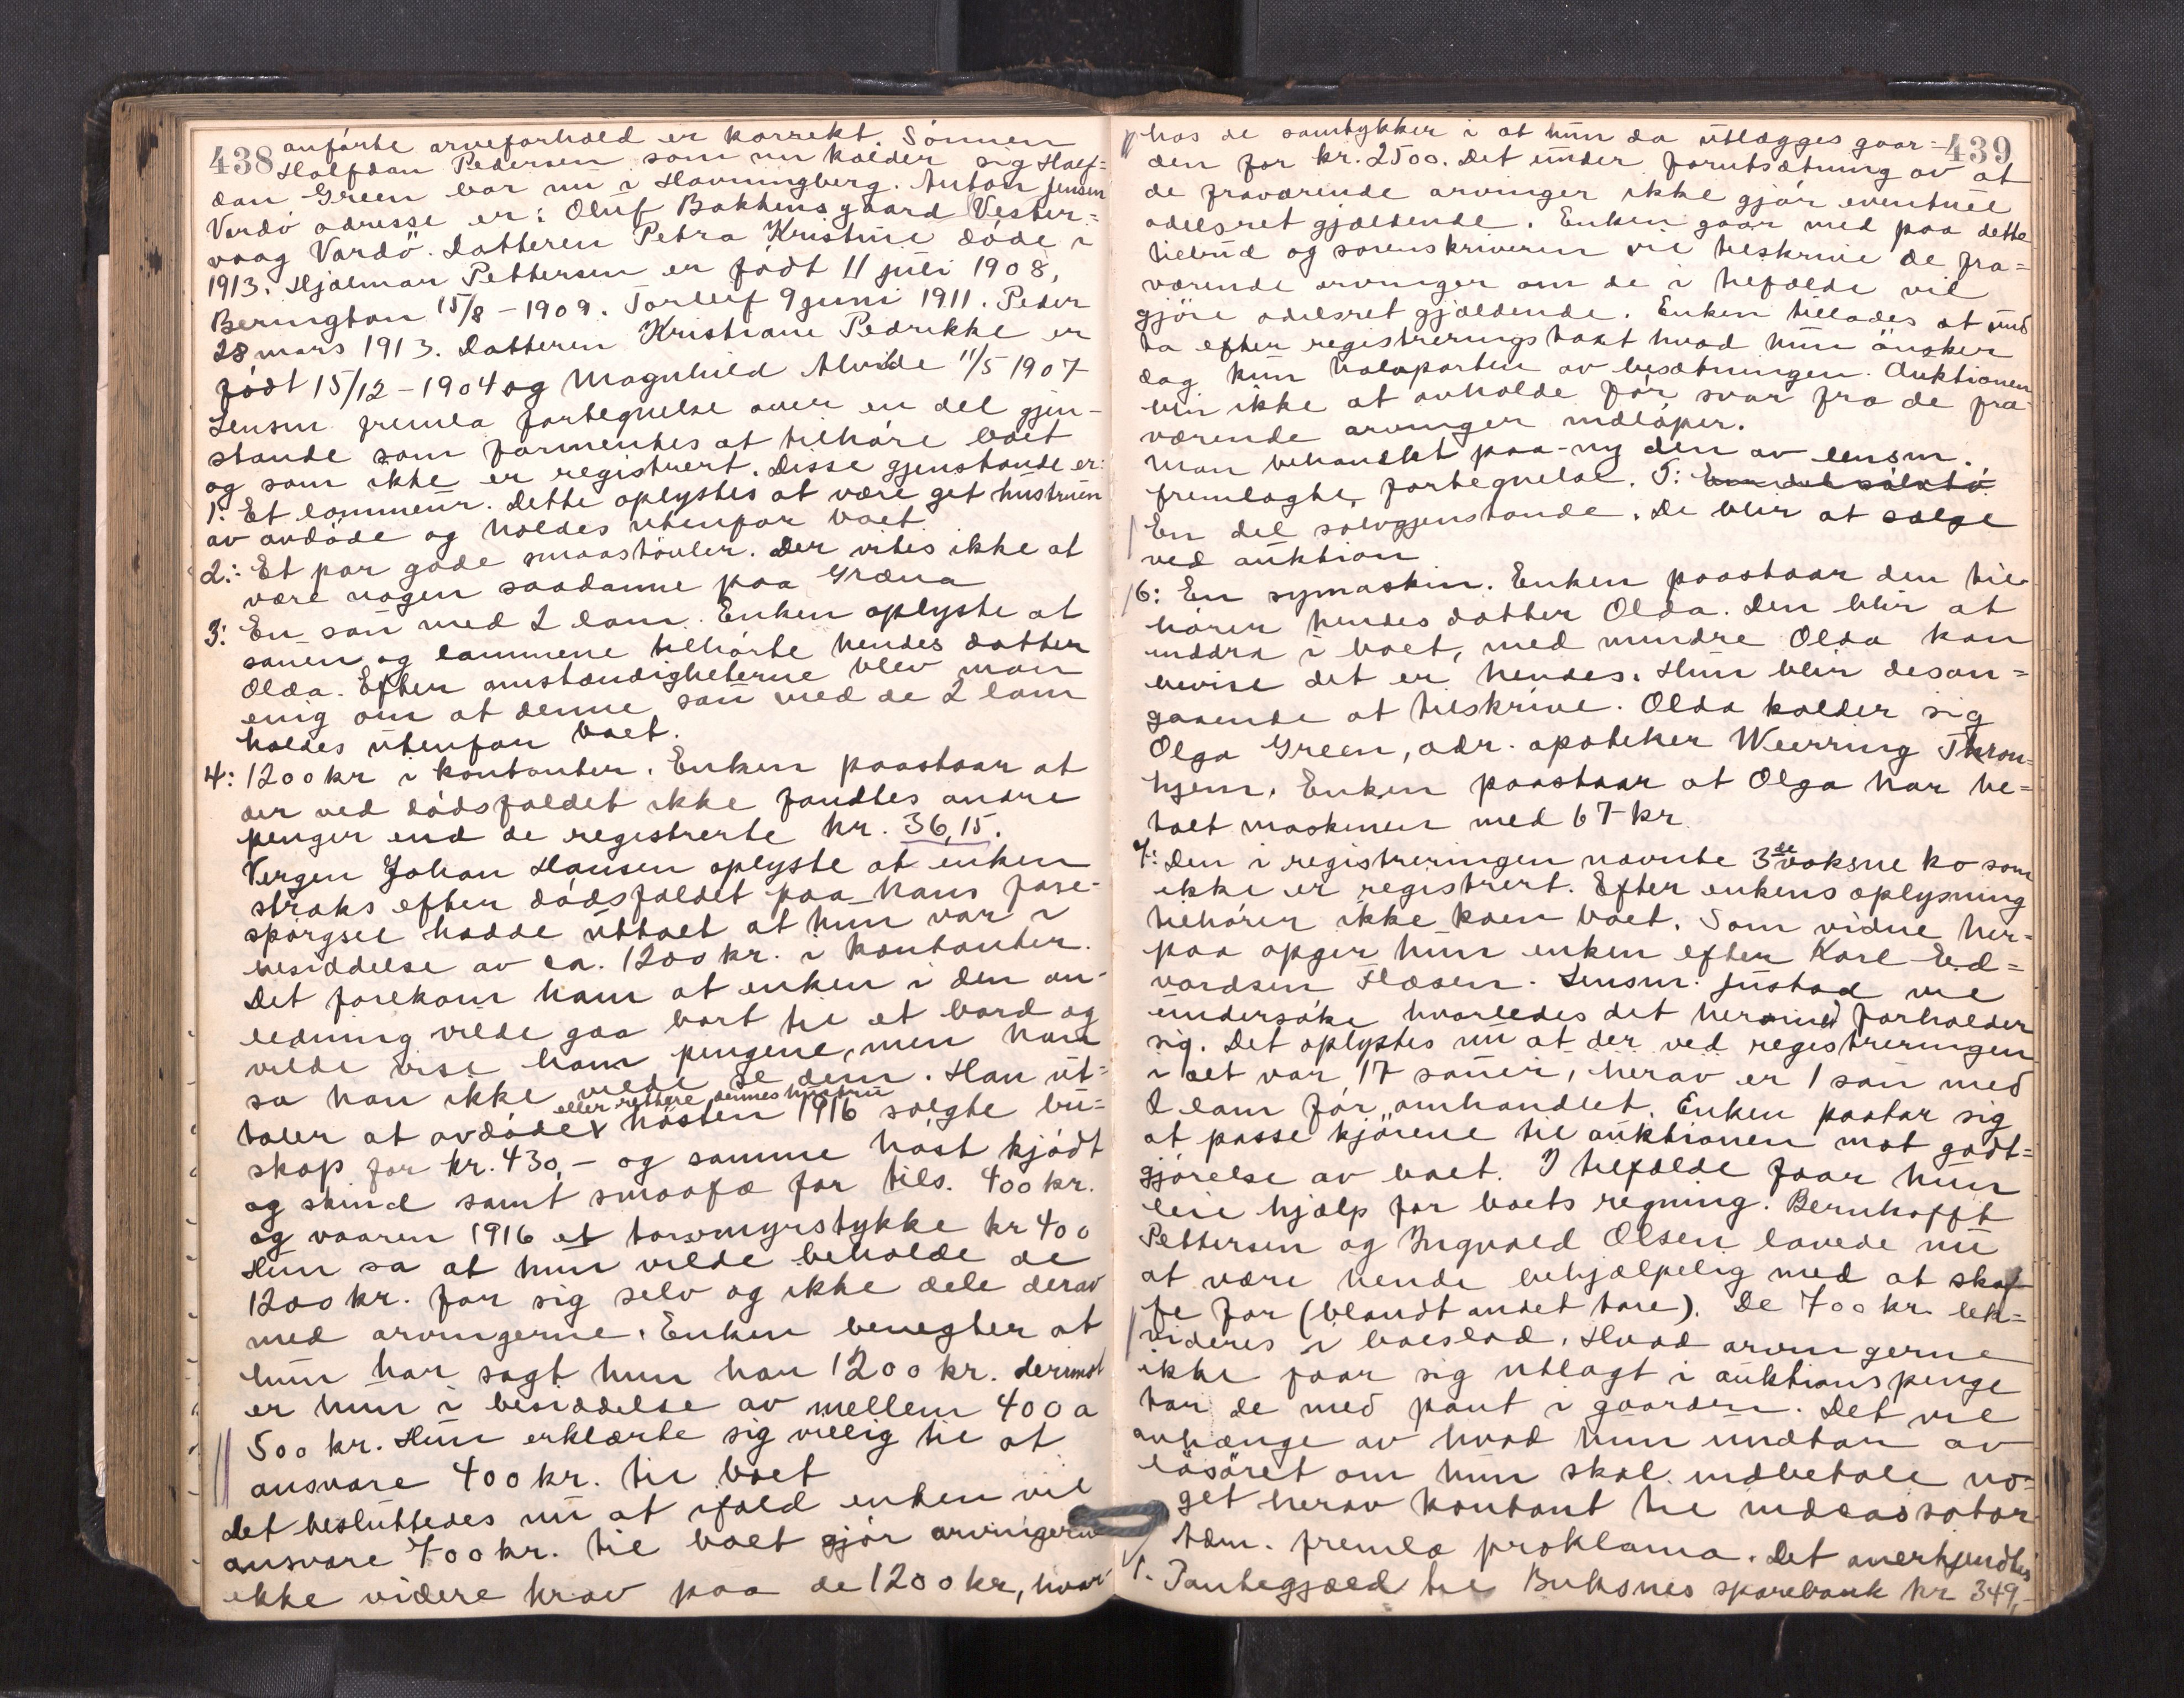 438
anførte arveforhold er korrekt. Sønnen
Halfdan Pedersen som nu kalder sig Half=
dan Green bor nu i Havningberg. Anton Jensen
Vardø adresse er: Oluf Bakkens gaard Vester=
vaag Vardö. Datteren Petra Kristine døde i
1913. Hjalmar Pettersen er født 11 juli 1908,
Berington 15/8-1909. Torleif 9 juni 1911. Peder
28 mars 1913. Datteren Kristiane Pedrikke er
født 15/12-1904 og Magnhild Alvilde 11/5 1907
Lensm fremla fortegnelse over en del gjen-
stande som formentes at tilhøre boet
og som ikke er registrert. Disse gjenstande er:
1: Et lommeur. Dette oplystes at være get hustruen
av avdøde og holdes utenfor boet
2.: Et par gode smaastøvler. Der vites ikke at
være nogen saadanne paa Græna
3: En sau med 2 lam. Enken oplyste at
sauen og lammene tilhørte hendes datter
Olda. Efter omstændigheterne blev man
enig om at denne sau med de 2 lam
holdes utenfor boet.
4: 1200 kr i kontanter. Enken paastaar at
der ved dødsfaldet ikke fandtes andre
penger end de registrerte kr. 36,15.
Vergen Johan Hansen oplyste at enken
straks efter dødsfaldet paa hans fore-
spørgsel hadde uttalt at hun var i
besiddelse av ca. 1200 kr. i kontanter.
Det forekom ham at enken i den an-
ledning vilde gaa bort til et bord og
vilde vise ham pengene, men han
sa han ikke vilde se dem. Han ut=
eller rettere dennes hustru
taler at avdøde høsten 1916 solgte bu=
skap for kr. 430,- og samme høst kjødt
og skind samt smaafæ for tils. 400 kr.
og vaaren 1916 et torvmyrstykke kr 400
Hun sa at hun vilde beholde de
1200 kr. for sig selv og ikke dele derav
med arvingerne. Enken benegter at
hun har sagt hun har 1200 kr. derimot
er hun i besiddelse av mellem 400 a
500 kr. Hun erklærte sig villig til at
ansvare 400 kr. til boet
Det besluttedes nu at ifald enken vil
ansvare 700 kr. til boet gjør arvingerne
ikke videre krav paa de 1200 kr, hvor
439
hos de samtykker i at hun da utlægges gaar=
den for kr. 2500. Det under forutsætning av at
de fraværende arvinger ikke gjør eventuel
odelsret gjældende. Enken gaar med paa dette
tilbud og sorenskriveren vil tilskrive de fra=
værende arvinger om de i tilfælde vil
gjøre odelsret gjældende. Enken tillades at und
ta efter registreringstakst hvad hun ønsker
dog kun halvparten av besætningen. Auktionen
blir ikke at avholde før svar fra de fra
værende arvinger indløper.
Man behandlet paa-ny den av lensm.
fremlagte fortegnelse. 5: En del sølvtø
En del sølvgjenstande. De blir at sælge
ved auktion
6: En symaskin. Enken paastaar den til
hører hendes datter Olda. Den blir at
inddra i boet, med mindre Olda kan
bevise det er hendes. Hun blir desan=
gaaende at tilskrive. Olda kalder sig
Olga Green, adr. apoteker Weerring Thron=
hjem. Enken paastaar at Olga har be=
talt maskinen med 67 kr
7: Den i registreringen navnte 3de voksne ko som
ikke er registrert. Efter enkens oplysning
tilhører ikke koen boet. Som vidne her=
paa opger hun enken efter Karl Ed=
vardsen Flæsen. Lensm. Justad vil
undersøke hvorledes det hermed forholder
sig. Det oplystes nu at der ved registreringen
i alt var 17 sauer, herav er 1 sau med
2 lam før omhandlet. Enken paatar sig
at passe kjørene til auktionen mot godt=
gjørelse av boet. I tilfælde faar hun
leie hjælp for boets regning. Bernhofft
Pettersen og Ingvald Olsen lovede nu
at være hende behjælpelig med at skaf
fe for (blandt andet tare). De 700 kr. lik=
videres i boeslod. Hvad arvingerne
ikke faar sig utlagt i auktionspenge
har de med pant i gaarden. Det vil
avhænge av hvad hun undtar av
løsøret om hun skal indbetale no=
get herav kontant til indcassator
Adm. fremla proklama. Det anerkjendtes
1. Pantegjæld til Buksnes sparebank kr 349,-